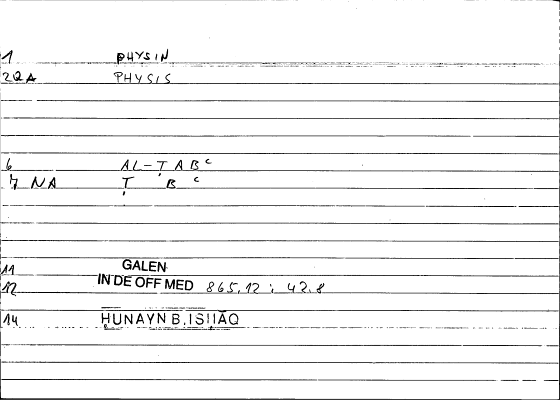 1 PHYSIN
2QA PHYSIS
6 AL-ṬABᶜ
7 NA Ṭ B ᶜ
11 GALEN
12 IN DE OFF MED 865,12 : 42.8
14 ḤUNAYN B. ISḤĀQ